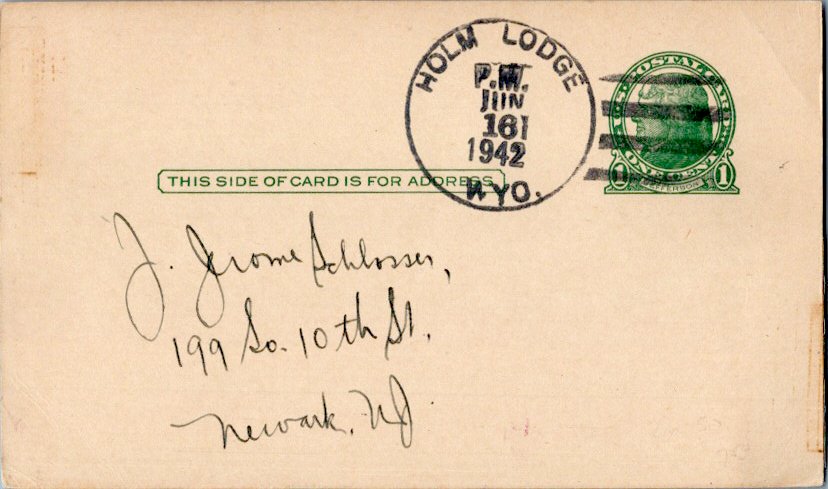 HOLM LODGE
P.M.
JUN
16
1942
WYO.
U.S. POSTAL CARD
ONE CENT
1 JEFFERSON 1
THIS SIDE OF CARD IS FOR ADDRESS
J. Jerome Schlosser,
199 So. 10th St.
Newark, NJ